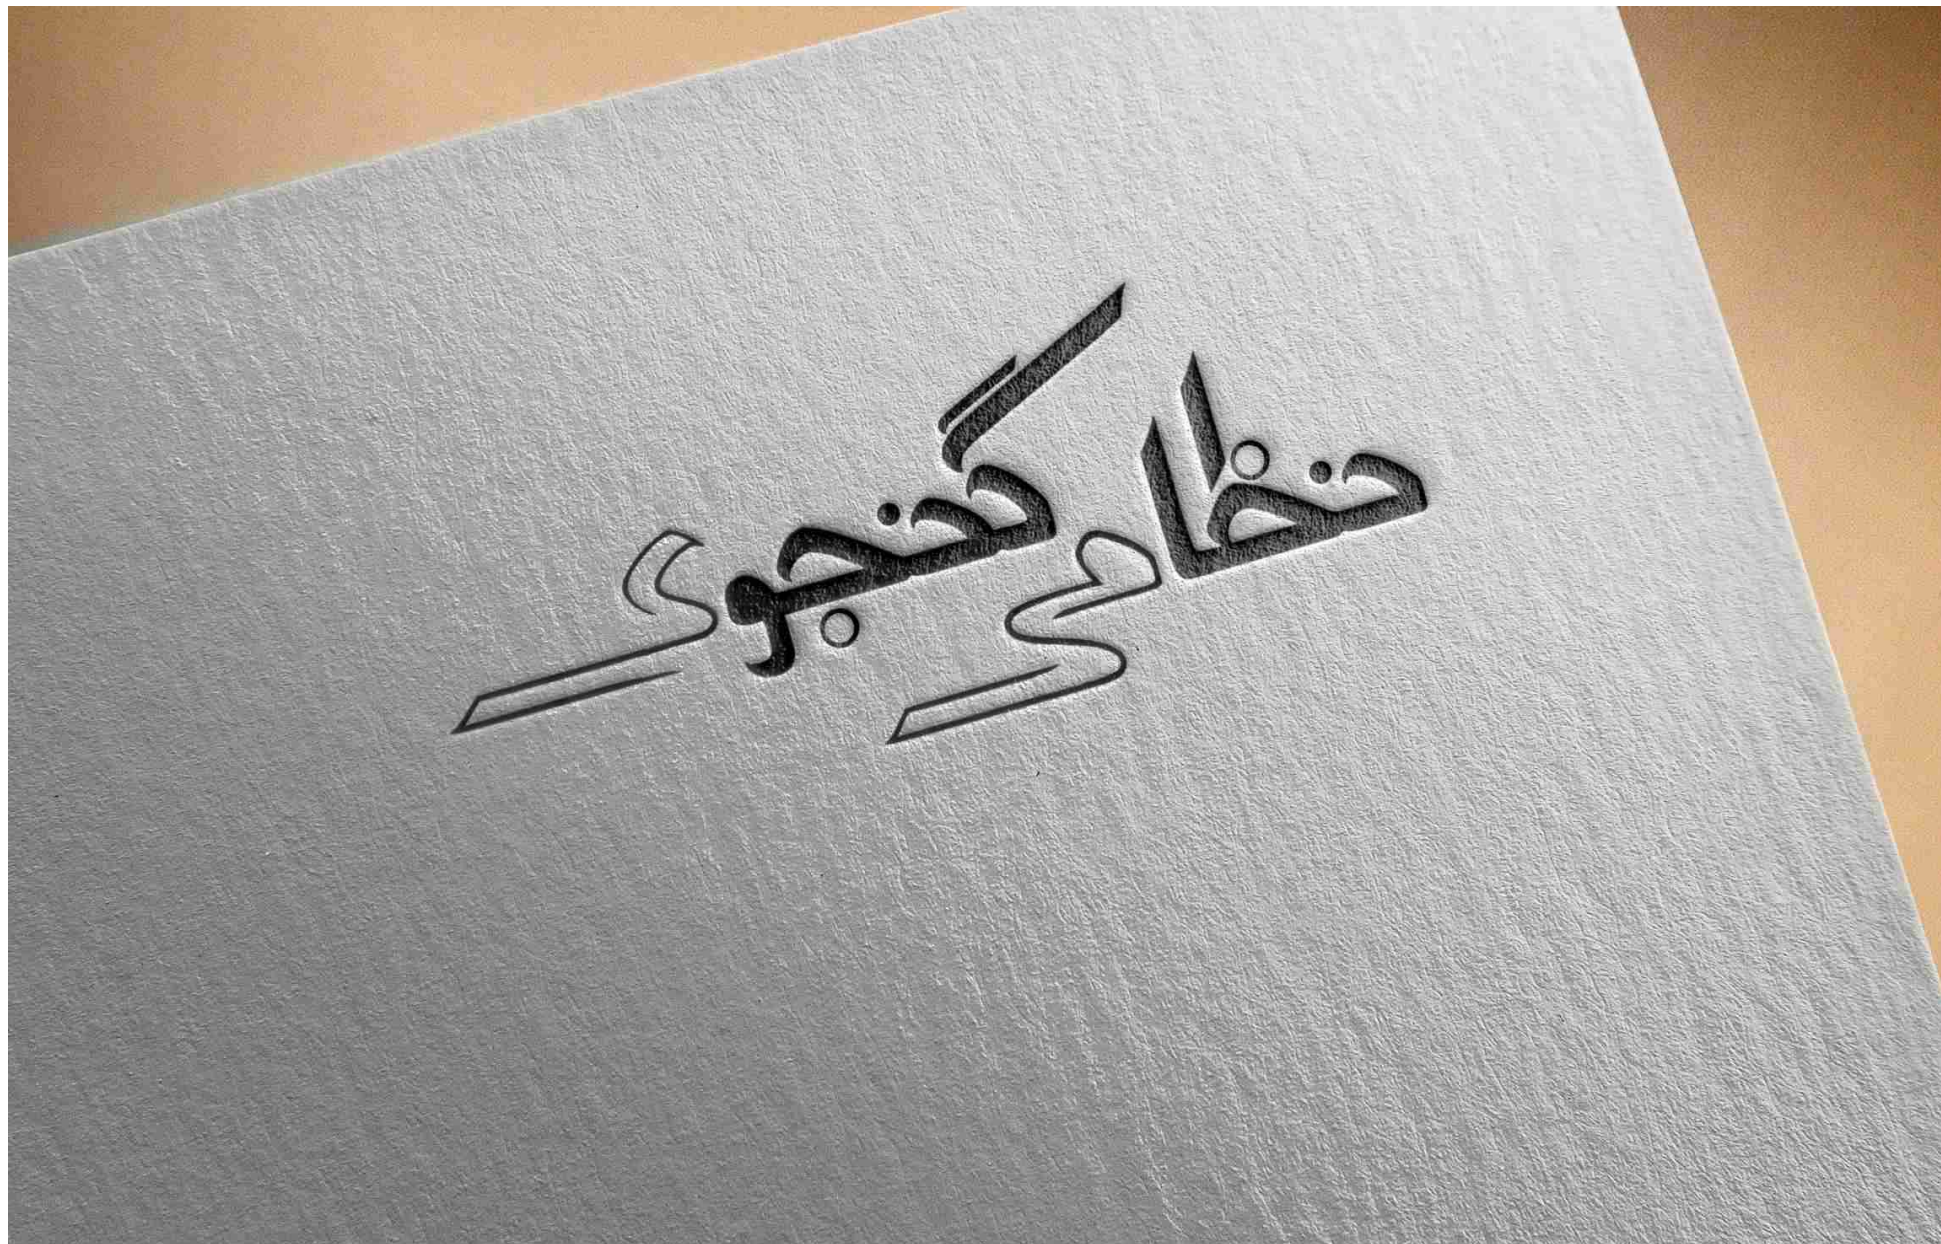 نظامی گنجوی